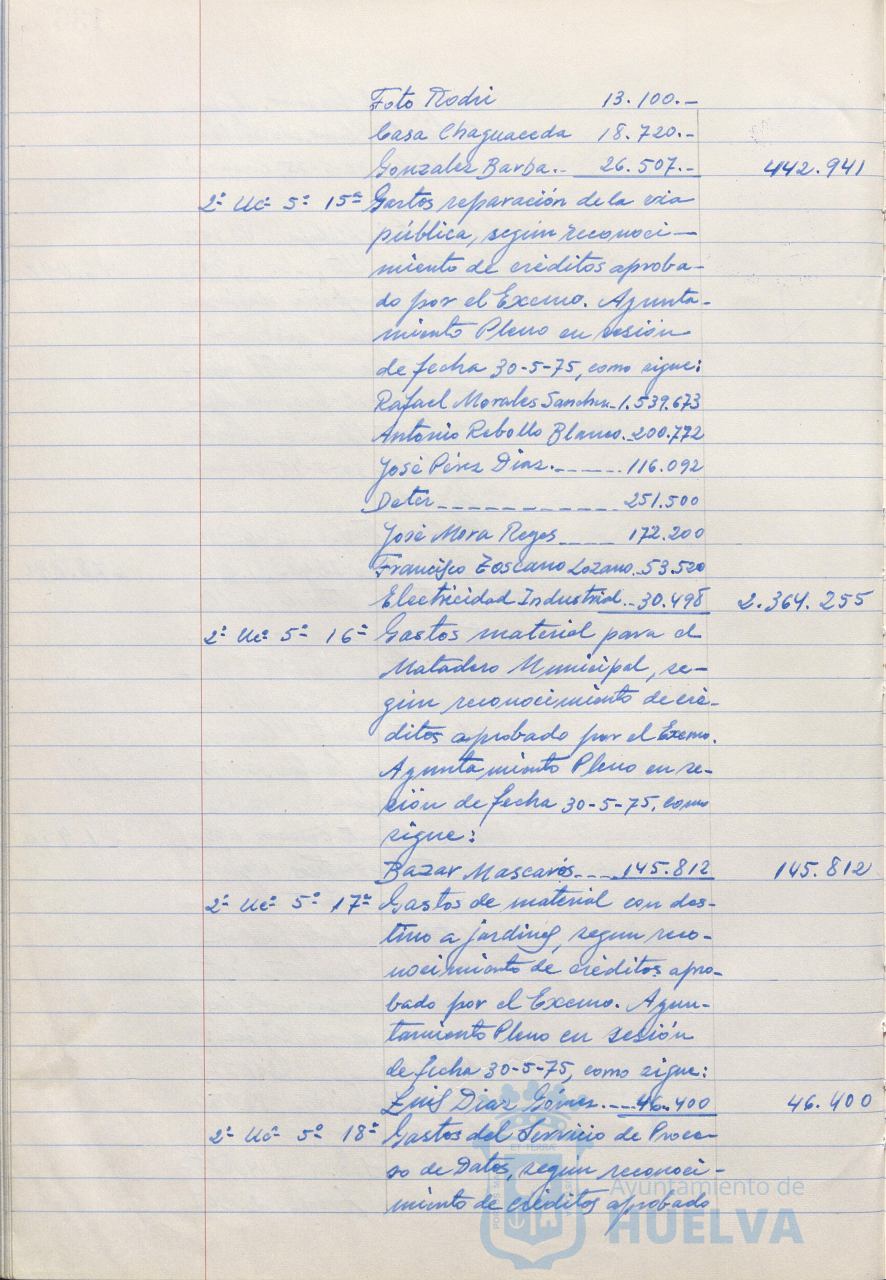 Foto Rodri 13.100.-
Casa Chaguaceda 18.720.-
Gonzalez Barba.- 26.507.- 442.941
2º Ucº 5º 15º Gastos reparación de la via
pública, según reconoci-
miento de créditos aproba-
do por el Excmo. Ayunta-
miento Pleno en sesión
de fecha 30-5-75, como sigue:
Rafael Morales Sanchez-1.539.673
Antonio Rebollo Blanco.-200.772
José Pérez Diaz.------116.092
Deter------------251.500
José Mora Reyes----172.200
Francisco Toscano Lozano.-53.520
Electricidad Industrial.-30.498 2.364.255
2º Ucº 5º 16º Gastos material para el
Matadero Municipal, se-
gún reconocimiento de cré-
ditos aprobado por el Excmo.
Ayuntamiento Pleno en se-
sión de fecha 30-5-75, como
sigue:
Bazar Mascarós.---145.812 145.812
2º Ucº 5º 17º Gastos de material con des-
tino a jardines, según reco-
nocimiento de créditos apro-
bado por el Excmo. Ayun-
tamiento Pleno en sesión
de fecha 30-5-75, como sigue:
Luis Diaz Gómez.---46.400 46.400
2º Ucº 5º 18º Gastos del Servicio de Proce-
so de Datos, según reconoci-
miento de créditos aprobado
Ayuntamiento de
HUELVA